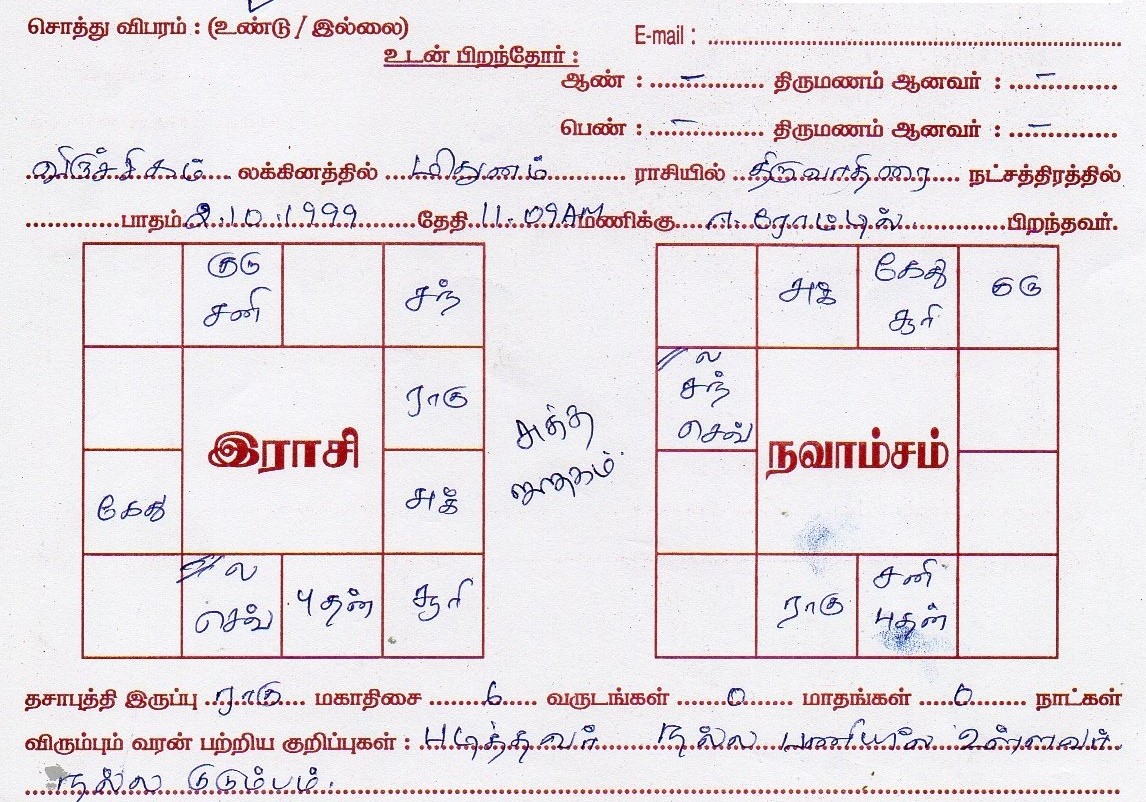 சொத்து விபரம் : (உண்டு / இல்லை)
E-mail : ........................
உடன் பிறந்தோர் :
ஆண் : ......–...... திருமணம் ஆனவர் : ...–......
பெண் : ......–...... திருமணம் ஆனவர் : ...–......
விருச்சிகம் லக்கினத்தில் மிதுனம் ராசியில் திருவாதிரை நட்சத்திரத்தில்
பாதம் 2.10.1999 தேதி 11.09AM மணிக்கு பிறந்தவர்.
குரு
சனி
சந்
ராகு
இராசி
கேது
அக்
ல
செவ்
புதன்
சூரி
சுத்த
ஜாதகம்.
அக்
கேது
சூரி
குரு
ல
சந்
செவ்
நவாம்சம்
ராகு
சனி
புதன்
தசாபுத்தி இருப்பு ராகு மகாதிசை 6 வருடங்கள் 0 மாதங்கள் 0 நாட்கள்
விரும்பும் வரன் பற்றிய குறிப்புகள் : படித்தவர் நல்ல பணியில் உள்ளவர்
நல்ல குடும்பம்.